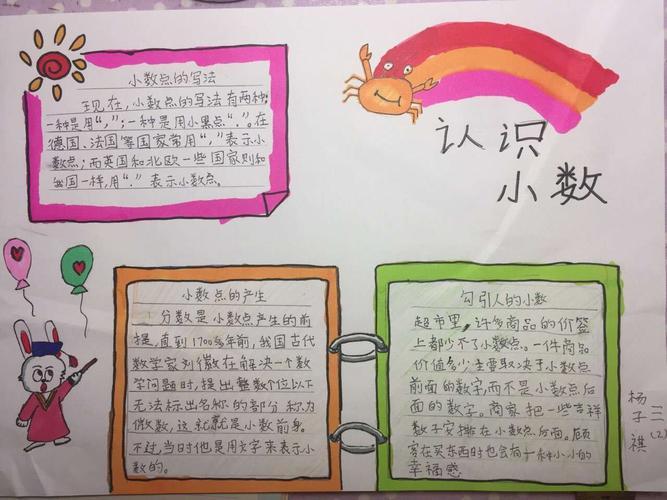 认识
小数
小数点的写法
现在,小数点的写法有两种:
一种是用“,”;一种是用小黑点“.”。在
德国、法国等国家常用“,”表示小
数点;而英国和北欧一些国家则和
我国一样,用“.”表示小数点。
小数点的产生
分数是小数点产生的前
提,直到1700多年前,我国古代
数学家刘徽在解决一个数
学问题时,提出整数个位以下
无法标出名称的部分称为
微数,这就就是小数前身。
不过,当时他是用文字来表示小
数的。
勾引人的小数
超市里,许多商品的价签
上都少不了小数点。一件商品
价值多少主要取决于小数点
前面的数字,而不是小数点后
面的数字。商家把一些吉祥
数子字排在小数点后面。顾
客在买东西时也会有一种小小的
幸福感
三(2)
杨子祺